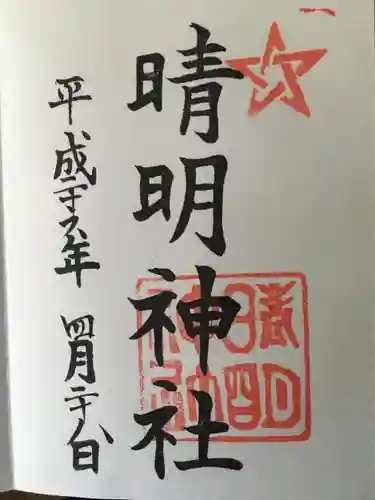 晴明神社
平成二十六年 四月二十八日
晴明
神社